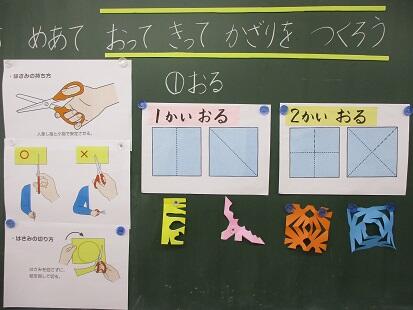 めあて おって きって かざりを つくろう
①おる
・はさみの持ち方
人差し指と小指で安定させる。
1かい おる
2かい おる
・はさみの切り方
はさみを回さずに、